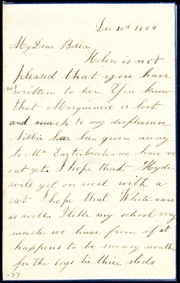 Dec 30th 1884
My Dear Bella
Helen is not
pleased that you have
written to her. You know
that Marguinie is lost
and much to my displeasure
Nibbie has been given away
to Mr Easterbrook we have no
cat yet. I hope that Hyde
will get on well with a
cat I hope that White ears
is well. I like my school very
much we have fun if it
happens to be snowy weather
for the boys tie their sleds